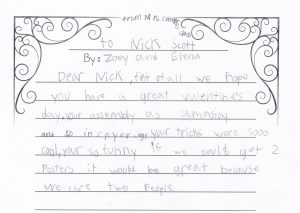 from Mrs.
class
to Nick Scott
By: Zoey and Elena
Dear Nick, first of all we hope
you have a great valentine's
day, your assembly as amasing
and so inspyering your tricks were sooo
cool, your so funny if we could get 2
Posters it would be great because
we are two people